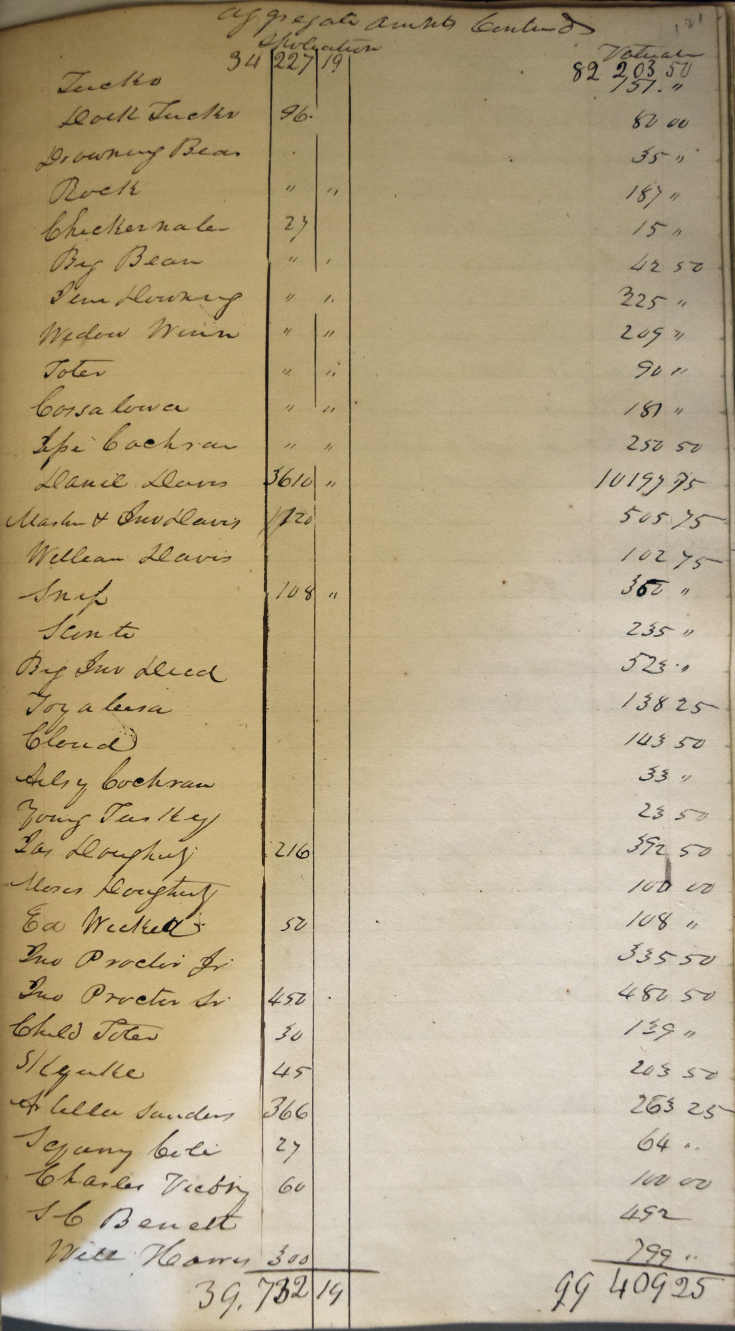 Aggregate Amnts Contind 121
Spoliation Valuatn
34 227 19 82 203 50
Tucko 151. "
Dock Tucko 96. 80 00
Drowning Bear 35 "
Rock " " 187 "
Chickernaler 27 15 "
Big Bean " " 42 50
Jim Downing " " 225 "
Widow Winn " " 209 "
Toter " " 90 "
Cossalowa " " 181 "
Cochran " " 250 50
Daniel Davis 3610 " 10197 75
Martin & Jno Davis 1120 505 75
William Davis 102 75
Snip 108 " 350 "
Sconte 235 "
Big Jno Deed 523 "
Toyaleesa 138 25
Cloud 143 50
Ailsy Cochran 33 "
Young Tuskey 23 50
Jas Doughety 216 392 50
Moses Doughety 100 00
Ed Wicked 50 108 "
Jno Proctor Jr 335 50
Jno Proctor Sr 450 480 50
Child Toter 30 139 "
Skyuke 45 203 50
Sanders 366 263 25
27 64 "
Charles Vickry 60 100 00
S C Benett 492
Will Harris 300 799 "
39,732 19 99 409 25